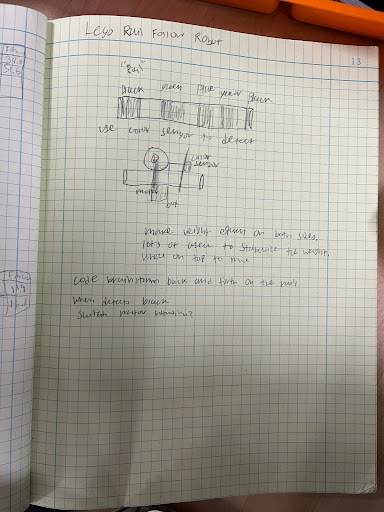 Lego Rail Follow Robot
13
"Rail"
black green blue black
use color sensor to detect
color
sensor
motor
bat
make weight equal on both sides,
lots of to stabilize the weight,
on top to
code brainstorm back and forth on the rail
when detects black
switch motor